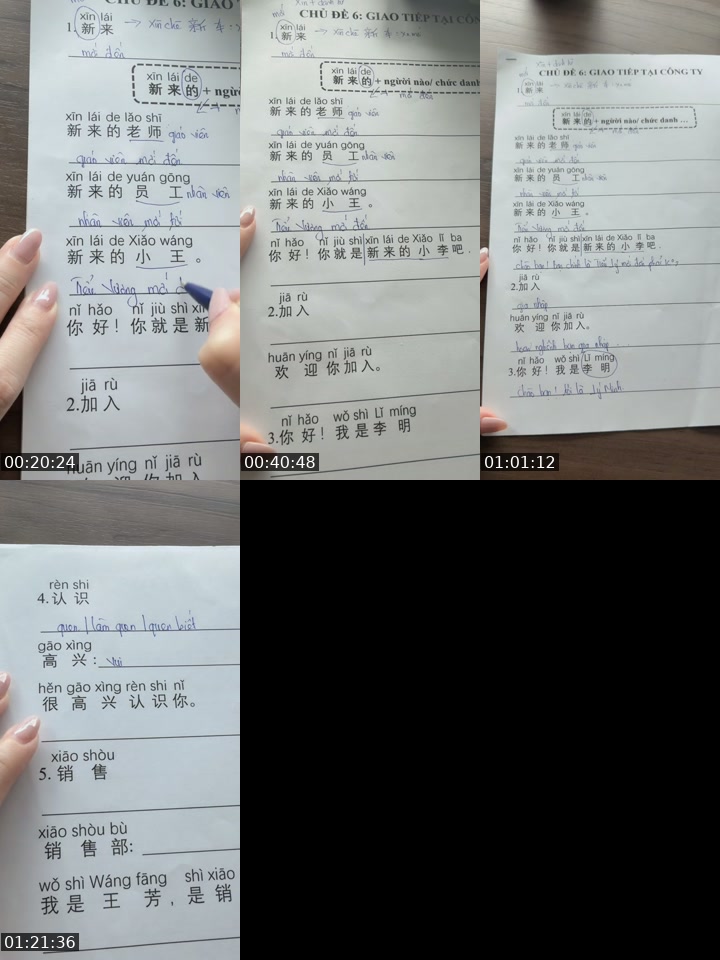 CHỦ ĐỀ 6: GIAO T
xīn lái
1. 新 来 → xīn chē 新 车
mới đến
xīn lái de
新 来 的 + ngườ
xīn lái de lǎo shī
新 来 的 老 师 giáo viên
giáo viên mới đến
xīn lái de yuán gōng
新 来 的 员 工 nhân viên
nhân viên mới tới
xīn lái de Xiǎo wáng
新 来 的 小 王 。
Tiểu Vương mới đ
nǐ hǎo nǐ jiù shì xīn
你 好！你 就 是 新
jiā rù
2.加 入
huān yíng nǐ jiā rù
00:20:24
CHỦ ĐỀ 6: GIAO TIẾP TẠI CÔN
xīn lái
1. 新 来 → xīn chē 新 车
mới đến
xīn lái de
新 来 的 + người nào/ chức danh
mới đến
xīn lái de lǎo shī
新 来 的 老 师 giáo viên
giáo viên mới đến
xīn lái de yuán gōng
新 来 的 员 工 nhân viên
nhân viên mới tới
xīn lái de Xiǎo wáng
新 来 的 小 王 。
Tiểu Vương mới đến
nǐ hǎo nǐ jiù shì xīn lái de Xiǎo lǐ ba
你 好！你 就 是 新 来 的 小 李 吧 .
jiā rù
2.加 入
huān yíng nǐ jiā rù
欢 迎 你 加 入。
nǐ hǎo wǒ shì Lǐ míng
3.你 好！我 是 李 明
00:40:48
CHỦ ĐỀ 6: GIAO TIẾP TẠI CÔNG TY
xīn lái
1. 新 来 → xīn chē 新 车
mới đến
xīn lái de
新 来 的 + người nào/ chức danh ...
xīn lái de lǎo shī
新 来 的 老 师 giáo viên
giáo viên mới đến
xīn lái de yuán gōng
新 来 的 员 工 nhân viên
nhân viên mới tới
xīn lái de Xiǎo wáng
新 来 的 小 王 。
Tiểu Vương mới đến
nǐ hǎo nǐ jiù shì xīn lái de Xiǎo lǐ ba
你 好！你 就 是 新 来 的 小 李 吧 .
chào bạn! bạn chính là Tiểu Lý mới đến phải k?
jiā rù
2.加 入
gia nhập
huān yíng nǐ jiā rù
欢 迎 你 加 入。
hoan nghênh bạn gia nhập
nǐ hǎo wǒ shì Lǐ míng
3.你 好！我 是 李 明
chào bạn! tôi là Lý Minh
01:01:12
rèn shi
4.认 识
quen / làm quen / quen biết
gāo xìng
高 兴 : vui
hěn gāo xìng rèn shi nǐ
很 高 兴 认 识 你。
xiāo shòu
5. 销 售
xiāo shòu bù
销 售 部:
wǒ shì Wáng fāng shì xiāo
我 是 王 芳 , 是 销
01:21:36